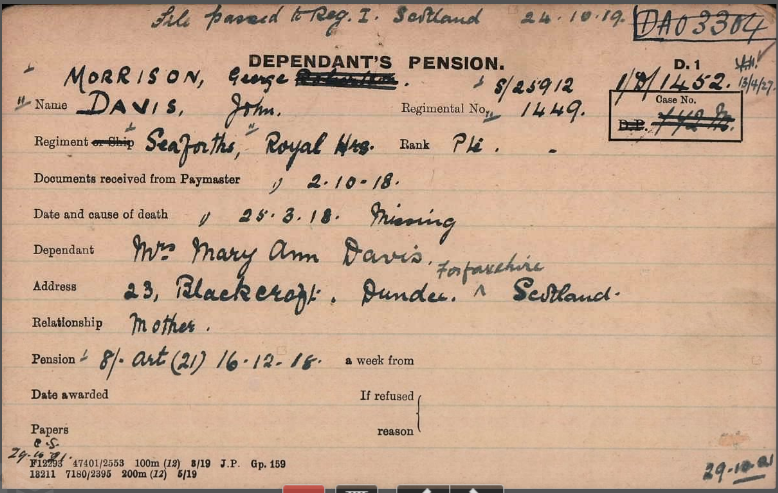 File passed to Reg. I. Scotland 24.10.19. DAO3304
DEPENDANT'S PENSION.
D. 1
MORRISON, George S/25912 1/D/1452. 13/4/27.
Name DAVIS, John. Regimental No. 1449. Case No.
D.P.
Regiment or Ship Seaforths, Royal Hrs. Rank Pte.
Documents received from Paymaster 2.10.18.
Date and cause of death 25.3.18. Missing
Dependant Mrs Mary Ann Davis.
Forfarshire
Address 23, Blackcroft, Dundee. ^ Scotland.
Relationship Mother.
Pension 8/- Art (21) 16.12.18. a week from
Date awarded If refused
Papers reason
F12293 47401/2553 100m (12) 3/19 J.P. Gp. 159
18211 7180/2395 200m (12) 5/19